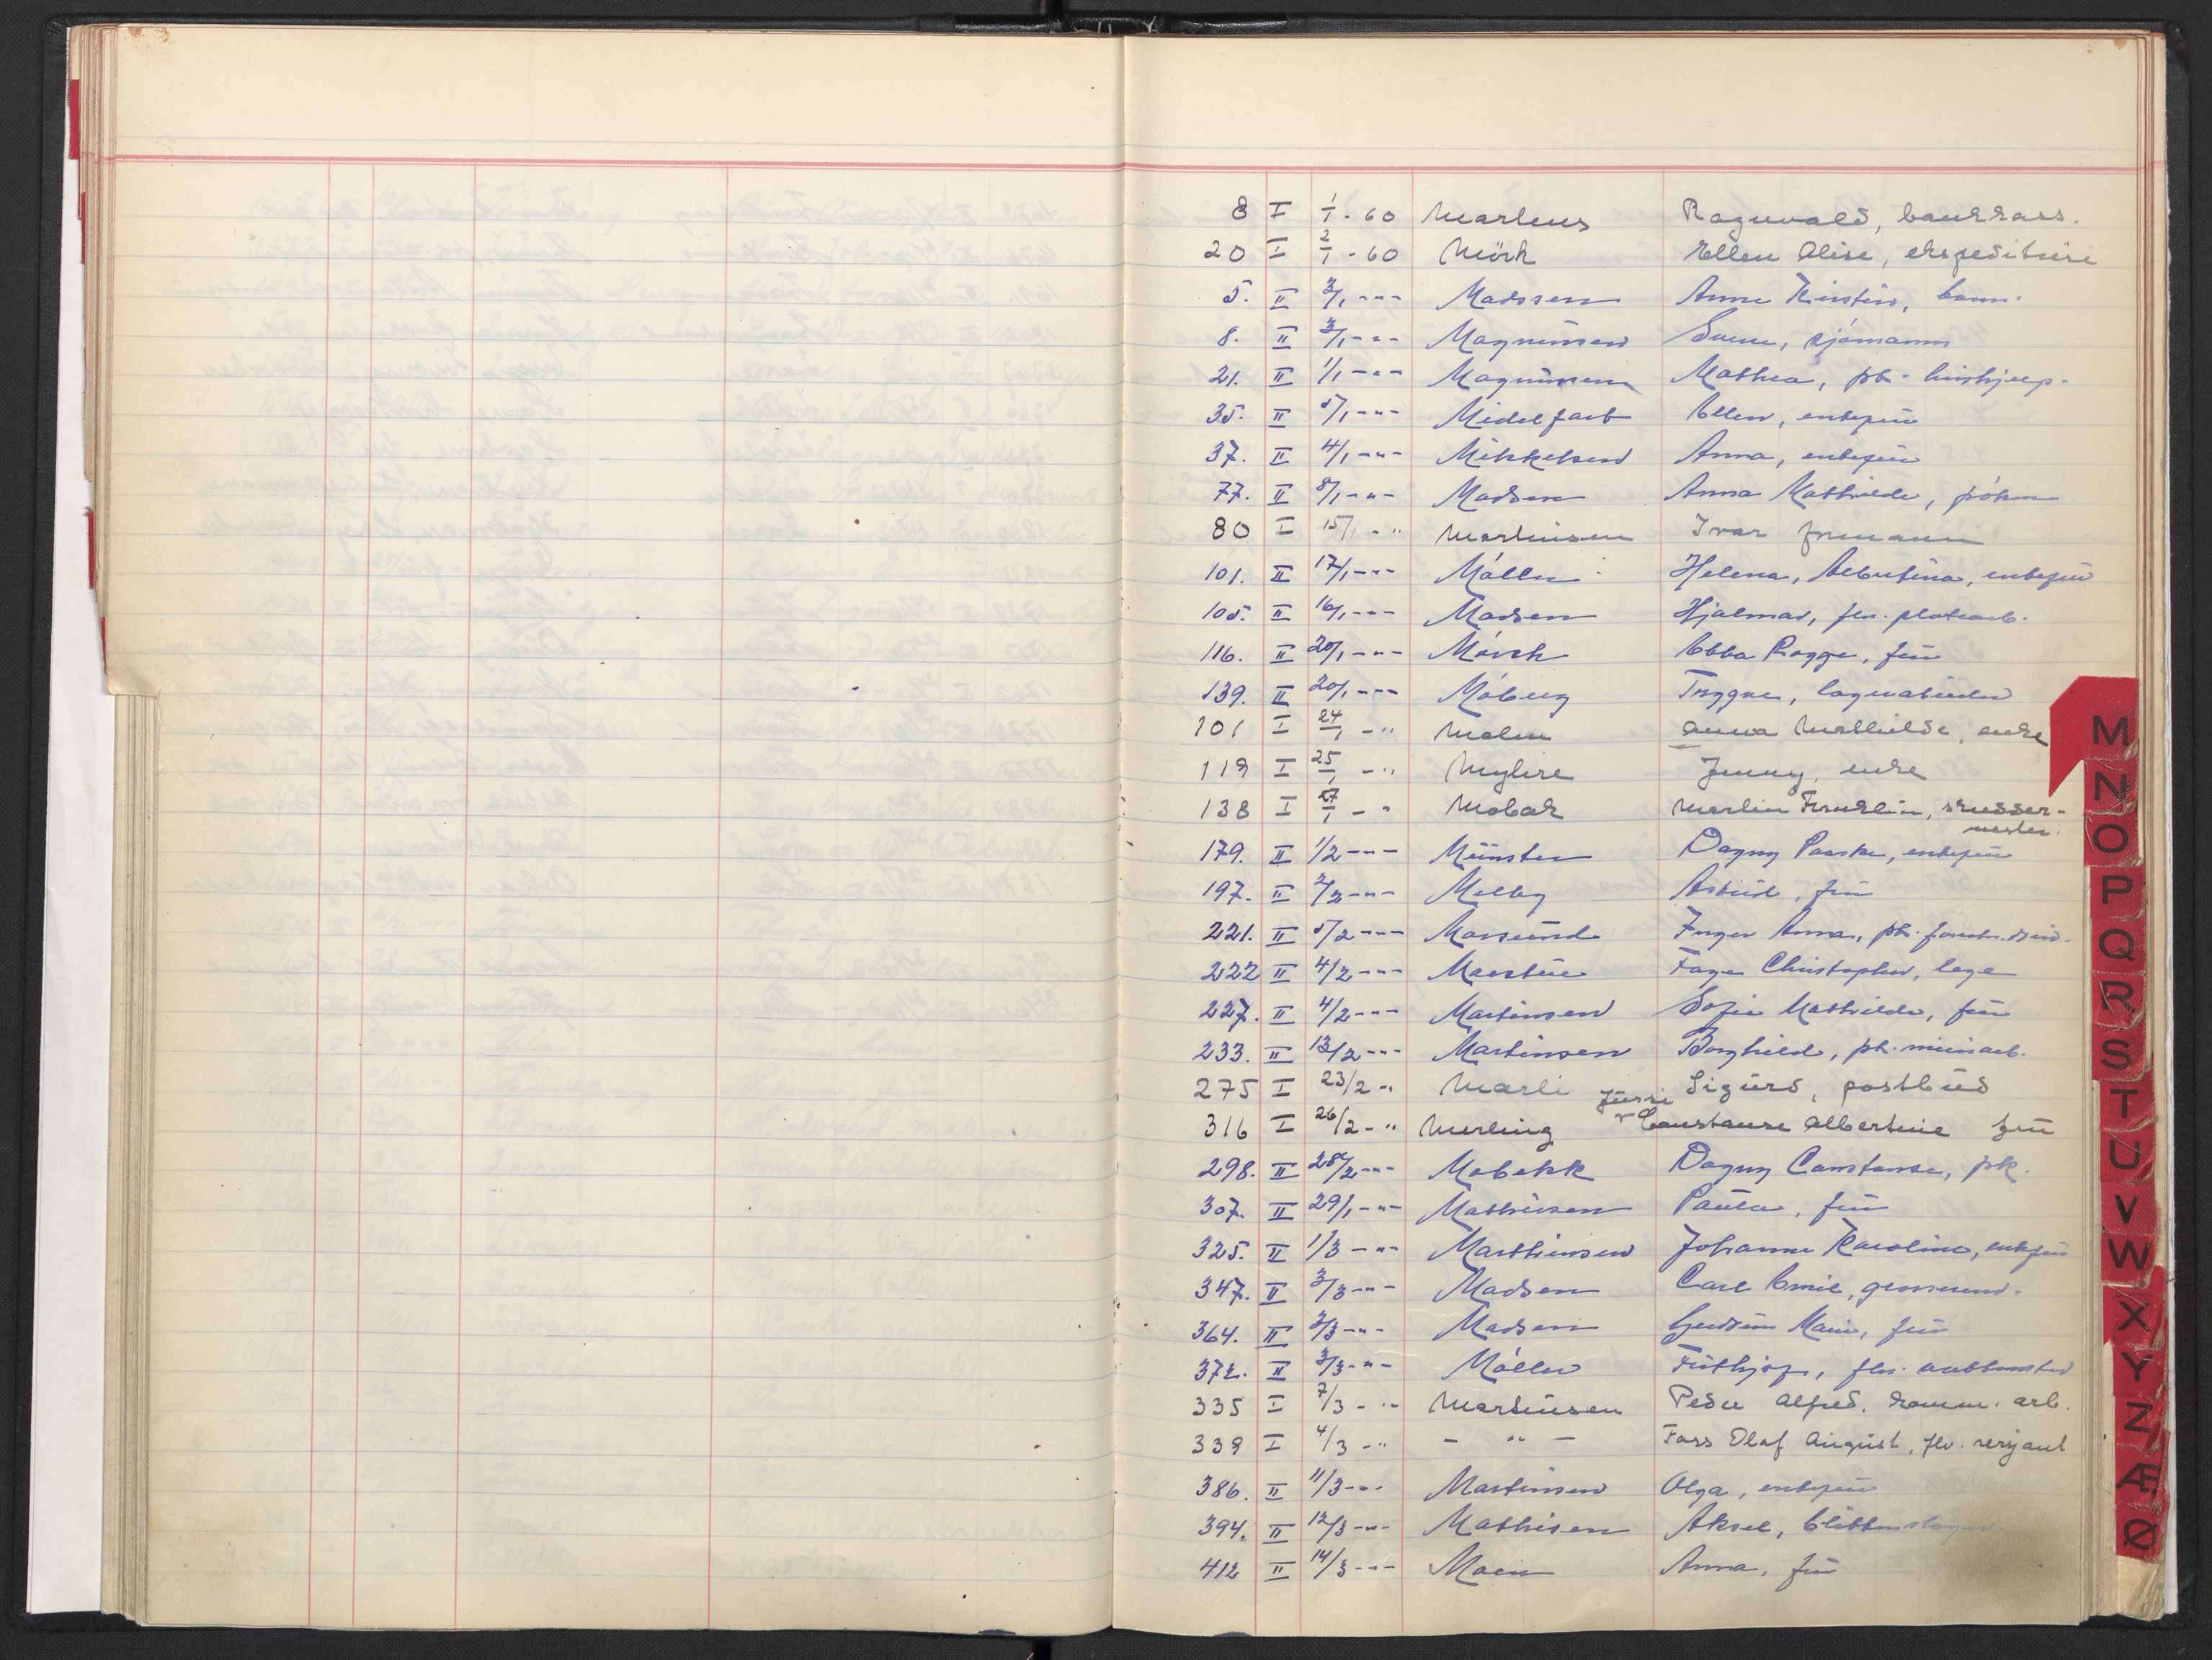 8 I 1/1 - 60 Martens Ragnvald, bankkass.
20 I 2/1 - 60 Mörk Ellen Alise, ekspeditrise
5. II 3/1 -"- Madssen Anne Kirstin, barn.
8. II 3/1 -"- Magnussen Sverre, sjömann
21. II 1/1 -"- Magnussen Mathea, pb. hushjelp.
35. II 5/1 -"- Midelfart Ellen, enkefru
37. II 4/1 -"- Mikkelsen Anna, enkefru
77. II 8/1 -"- Madsen Anna Mathilde,
80 I 15/1 - " Martinsen Ivar formann
101. II 17/1 -"- Möller Helena, Albertina, enkefru
105. II 16/1 -"- Madsen Hjalmar, fhv. platearb.
116. II 20/1 -"- Mörch Ebba Rogge, fru
139. II 20/1 -"- Möberg Tryggve,
101 I 24/1 - " Malm Anna Mathilde, enke
119 I 25/1 - " Myhre Jenny, enke
138 I 27/1 - " Mobak Martin Franklin, skredder-
mester.
179. II 1/2 -"- Münster Dagny Paaske, enkefru
197. II 2/2 -"- Melby Astrid, fru
221. II 5/2 -"- Morsund Inger Anna,
222 II 4/2 -"- Maartin Fage Christopher, lege
227. II 4/2 -"- Martinsen Sofie Mathilde, fru
233. II 13/2 -"- Martinsen Borghild,
275 I 23/2 - " Marli Sigurd, postbud
Jussi
316 I 26/2 - " Merling Constanse Albertine fru
298. II 28/2 -"- Mobekk Dagny Constanse, pk.
307. II 29/1 -"- Mathiesen Paula, fru
325. II 1/3 -"- Marthinsen Johanne Karoline, enkefru
347. II 3/3 -"- Madsen Carl Emil, grosserer.
364. II 3/3 -"- Madsen Gudrun Marie, fru
372. II 3/3 -"- Möller Frithjof, fhv.
335 I 7/3 - " Martinsen Peder Alfred, komm. arb.
339 I 4/3 - " - " - Foss Olaf August, fhv. serjant
386. II 11/3 -"- Martinsen Olga, enkefru
394. II 12/3 -"- Mathisen Aksel, blikkenslager
412 II 14/3 -"- Moen Anna, fru
M
N
O
P
Q
R
S
T
U
V
W
X
Y
Z
Æ
Ø